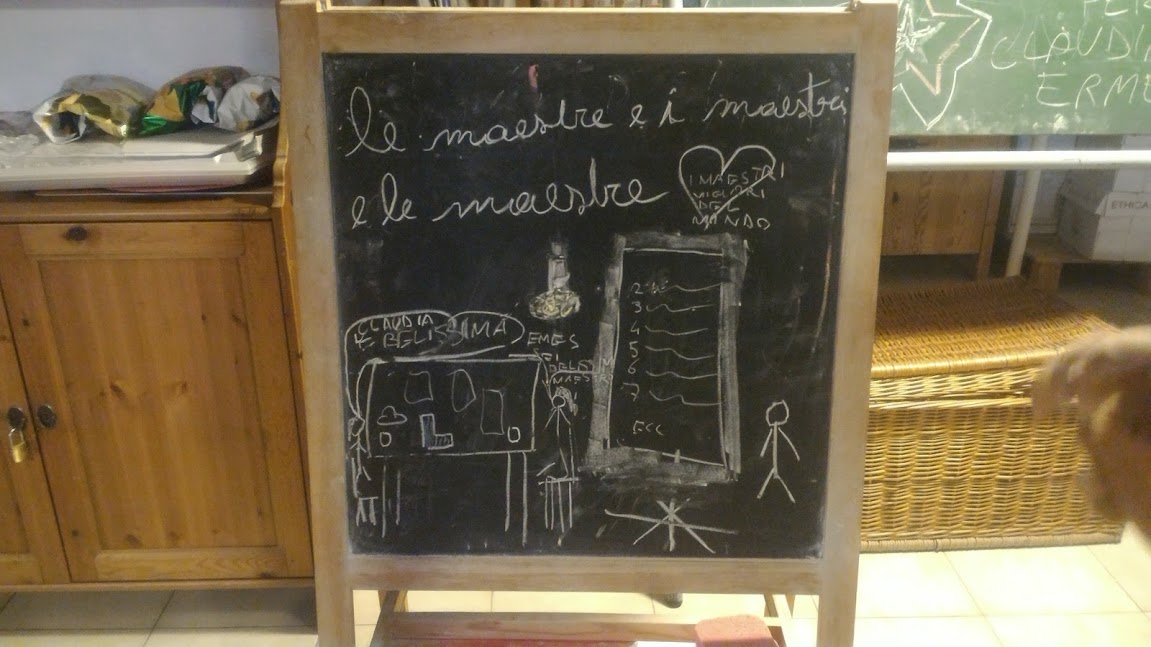 le maestre e i maestri
e le maestre
I MAESTRI
MIGLIORI
DEL
MONDO
CLAUDIA
È BELISSIMA
EMES
2
3
4
5
6
7
ECC
CLAUDI
ERME
ETHICA